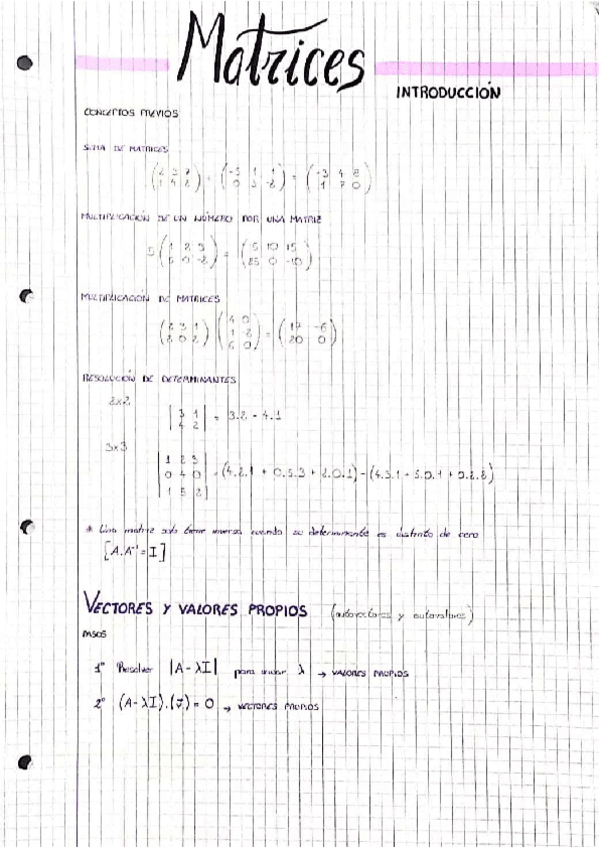 Matrices
INTRODUCCIÓN
CONCEPTOS PREVIOS
SUMA DE MATRICES
MULTIPLICACIÓN DE UN NÚMERO POR UNA MATRIZ
5 ( 1 2 3 = ( 5 10 15
0 -2 ) 25 0 -10 )
MULTIPLICACIÓN DE MATRICES
( 2 3 1 ( 4 0 = ( 17 -6
2 0 2 ) 1 -2 20 0 )
6 0 )
RESOLUCIÓN DE DETERMINANTES
2x2
| 3 1 | = 3.2 - 4.1
| 4 2 |
3x3
| 1 2 3 |
| 0 4 0 | = (4.2.1 + 0.5.3 + 2.0.1) - (4.3.1 + 5.0.1 + 0.2.2)
| 1 5 2 |
* Una matriz solo tiene inversa cuando su determinante es distinto de cero
[A.A⁻¹ = I]
VECTORES Y VALORES PROPIOS (autovectores y autovalores)
PASOS
1º Resolver |A - λI| para λ → VALORES PROPIOS
2º (A - λI).(v⃗) = 0 → VECTORES PROPIOS